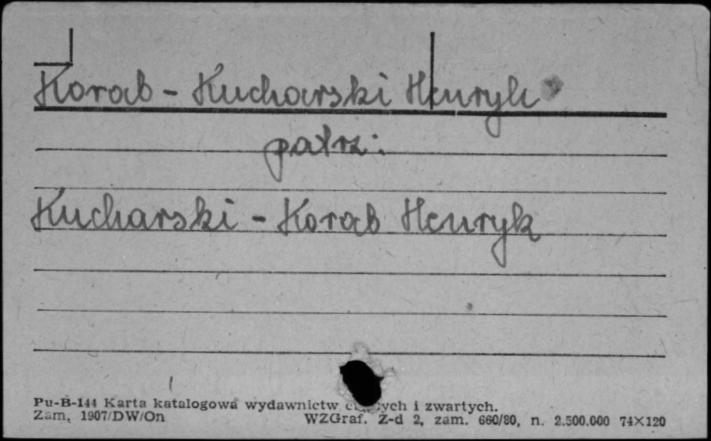 Korab - Kucharski Henryk
patrz:
Kucharski - Korab Henryk
Pu-B-144 Karta katalogowa wydawnictw i zwartych.
Zam. 1907/DW/On WZGraf. Z-d 2, zam. 660/80, n. 2.500.000 74×120